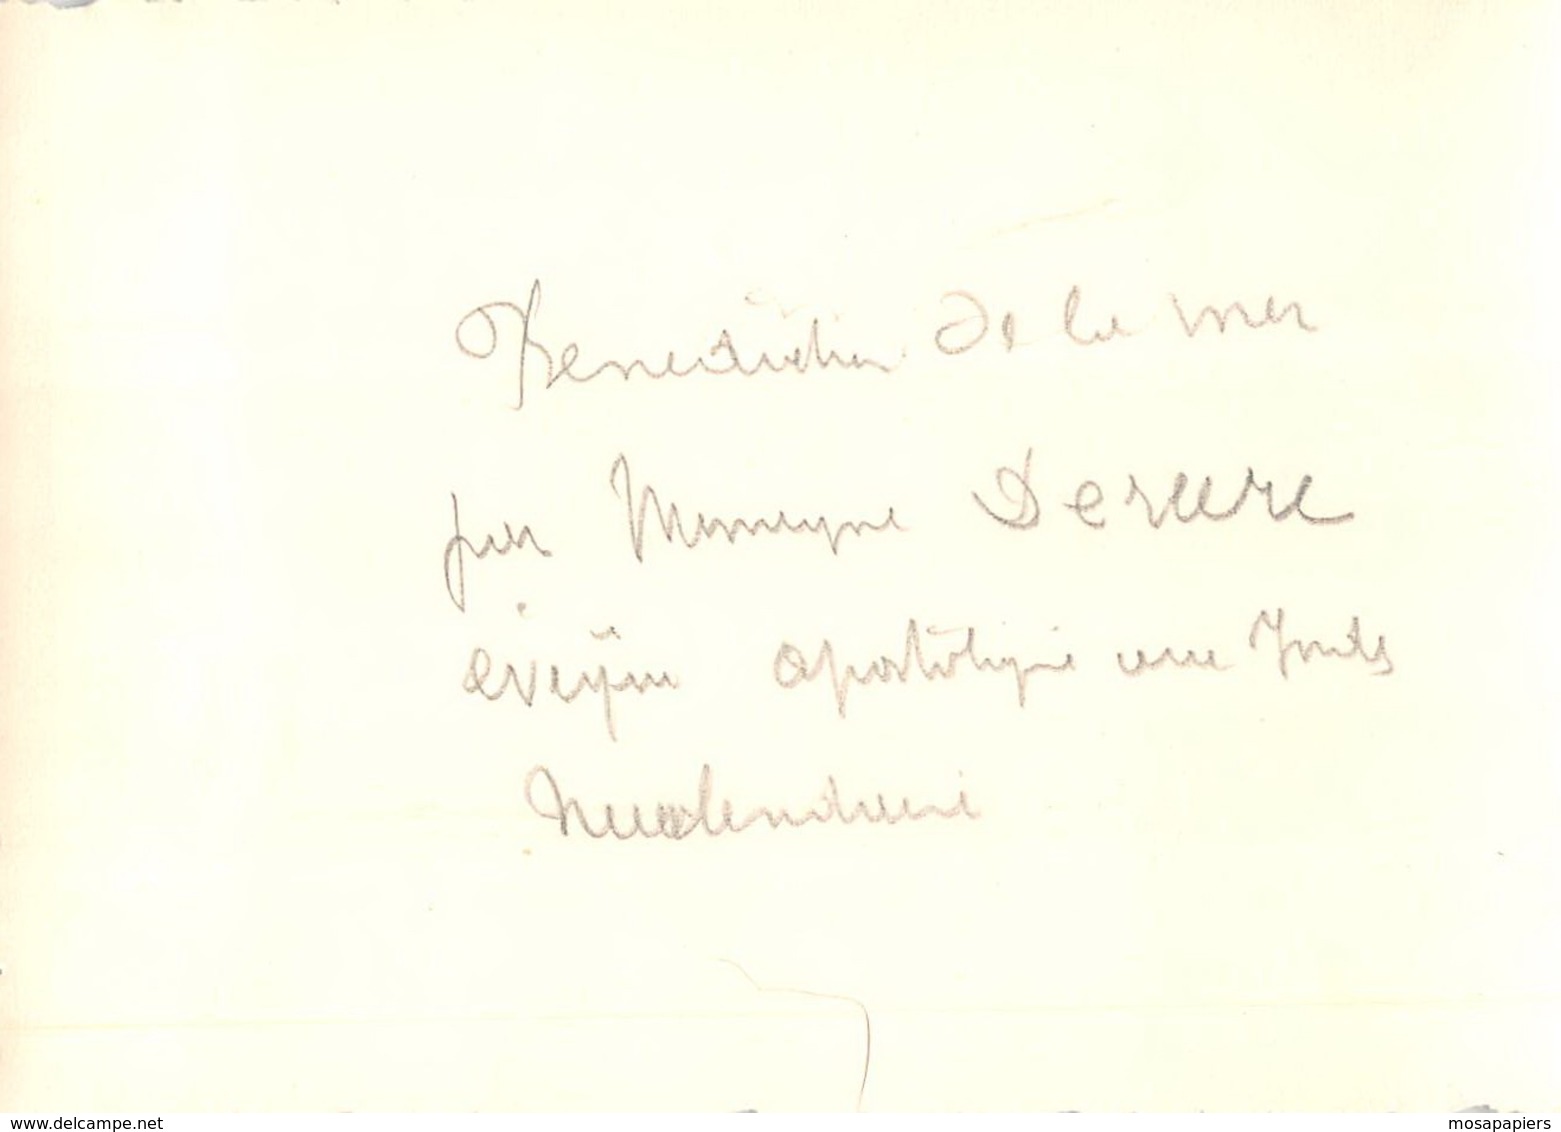 Benediction de la mer
par Monseigne Deruere
eveque apostolique aux Indes
Neerlandaise
www.delcampe.net
mosapapiers